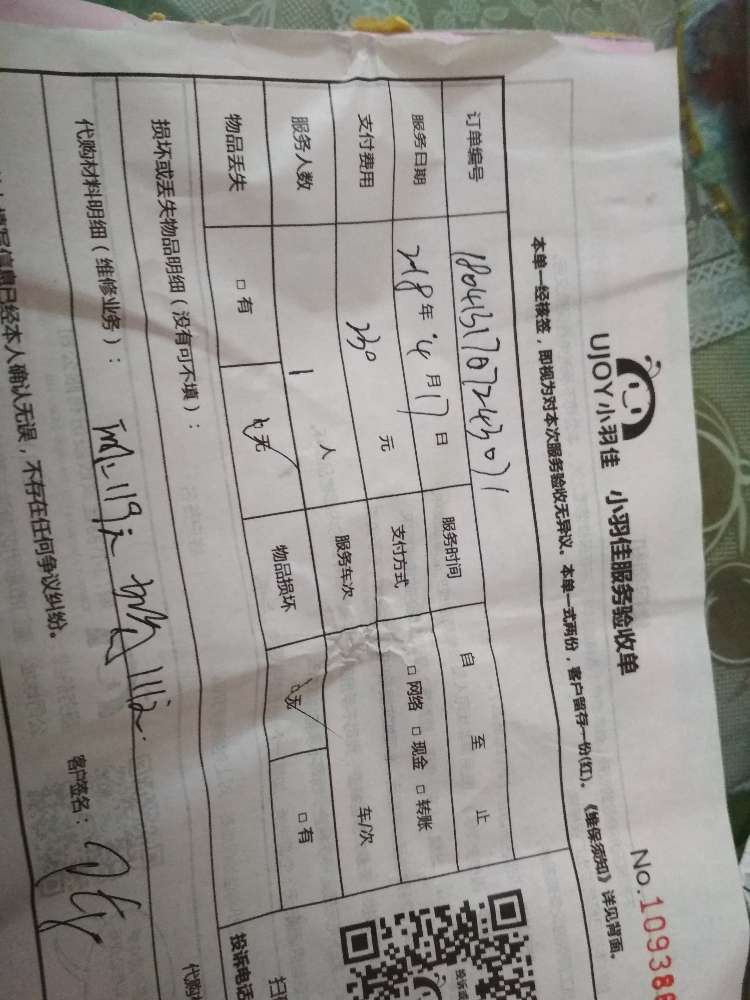 UJOY小羽佳 小羽佳服务验收单
No.10938
本单一经接签，即视为对本次服务验收无异议。本单一式两份，客户留存一份(红)。《维保须知》详见背面。
订单编号 服务时间 自 至 止
服务日期 2018年 4月17日 支付方式 □网络 □现金 □转账
支付费用 230 元 服务车次 车/次
服务人数 1 人 物品损坏 □无 □有
物品丢失 □有 □无
损坏或丢失物品明细（没有可不填）：
代购材料明细（维修业务）：
客户签名：
信息已经本人确认无误，不存在任何争议纠纷。
投诉电话